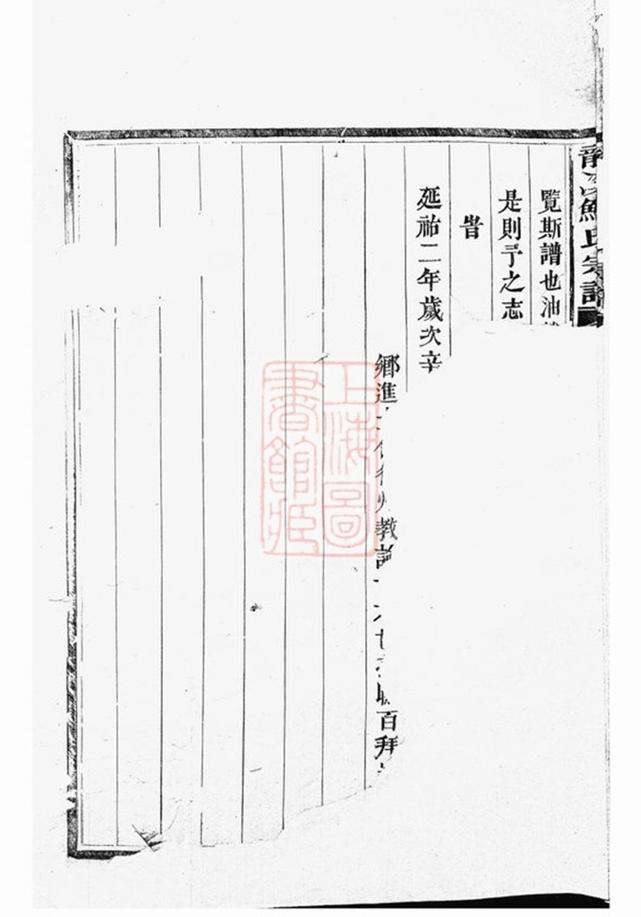 蘇氏宗譜
覽斯譜也油
是則予之志
旹
延祐二年歲次辛
鄉進
教諭
百拜
上海圖
書館藏